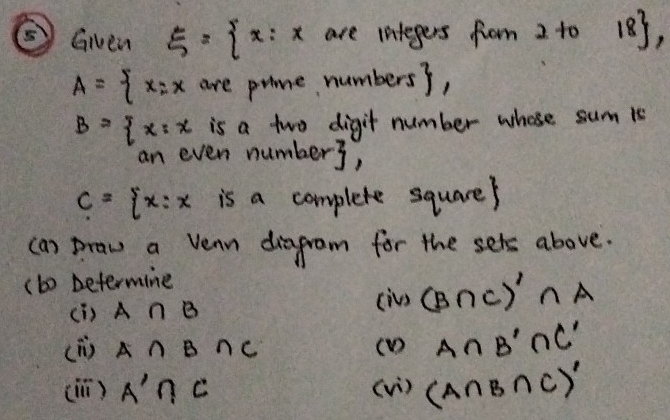 (5) Given ξ = {x: x are integers from 2 to 18},
A = {x:x are prime numbers},
B = {x:x is a two digit number whose sum is
an even number},
C = {x:x is a complete square}
(a) Draw a Venn diagram for the sets above.
(b) Determine
(i) A ∩ B
(ii) A ∩ B ∩ C
(iii) A' ∩ C
(iv) (B ∩ C)' ∩ A
(v) A ∩ B' ∩ C'
(vi) (A ∩ B ∩ C)'